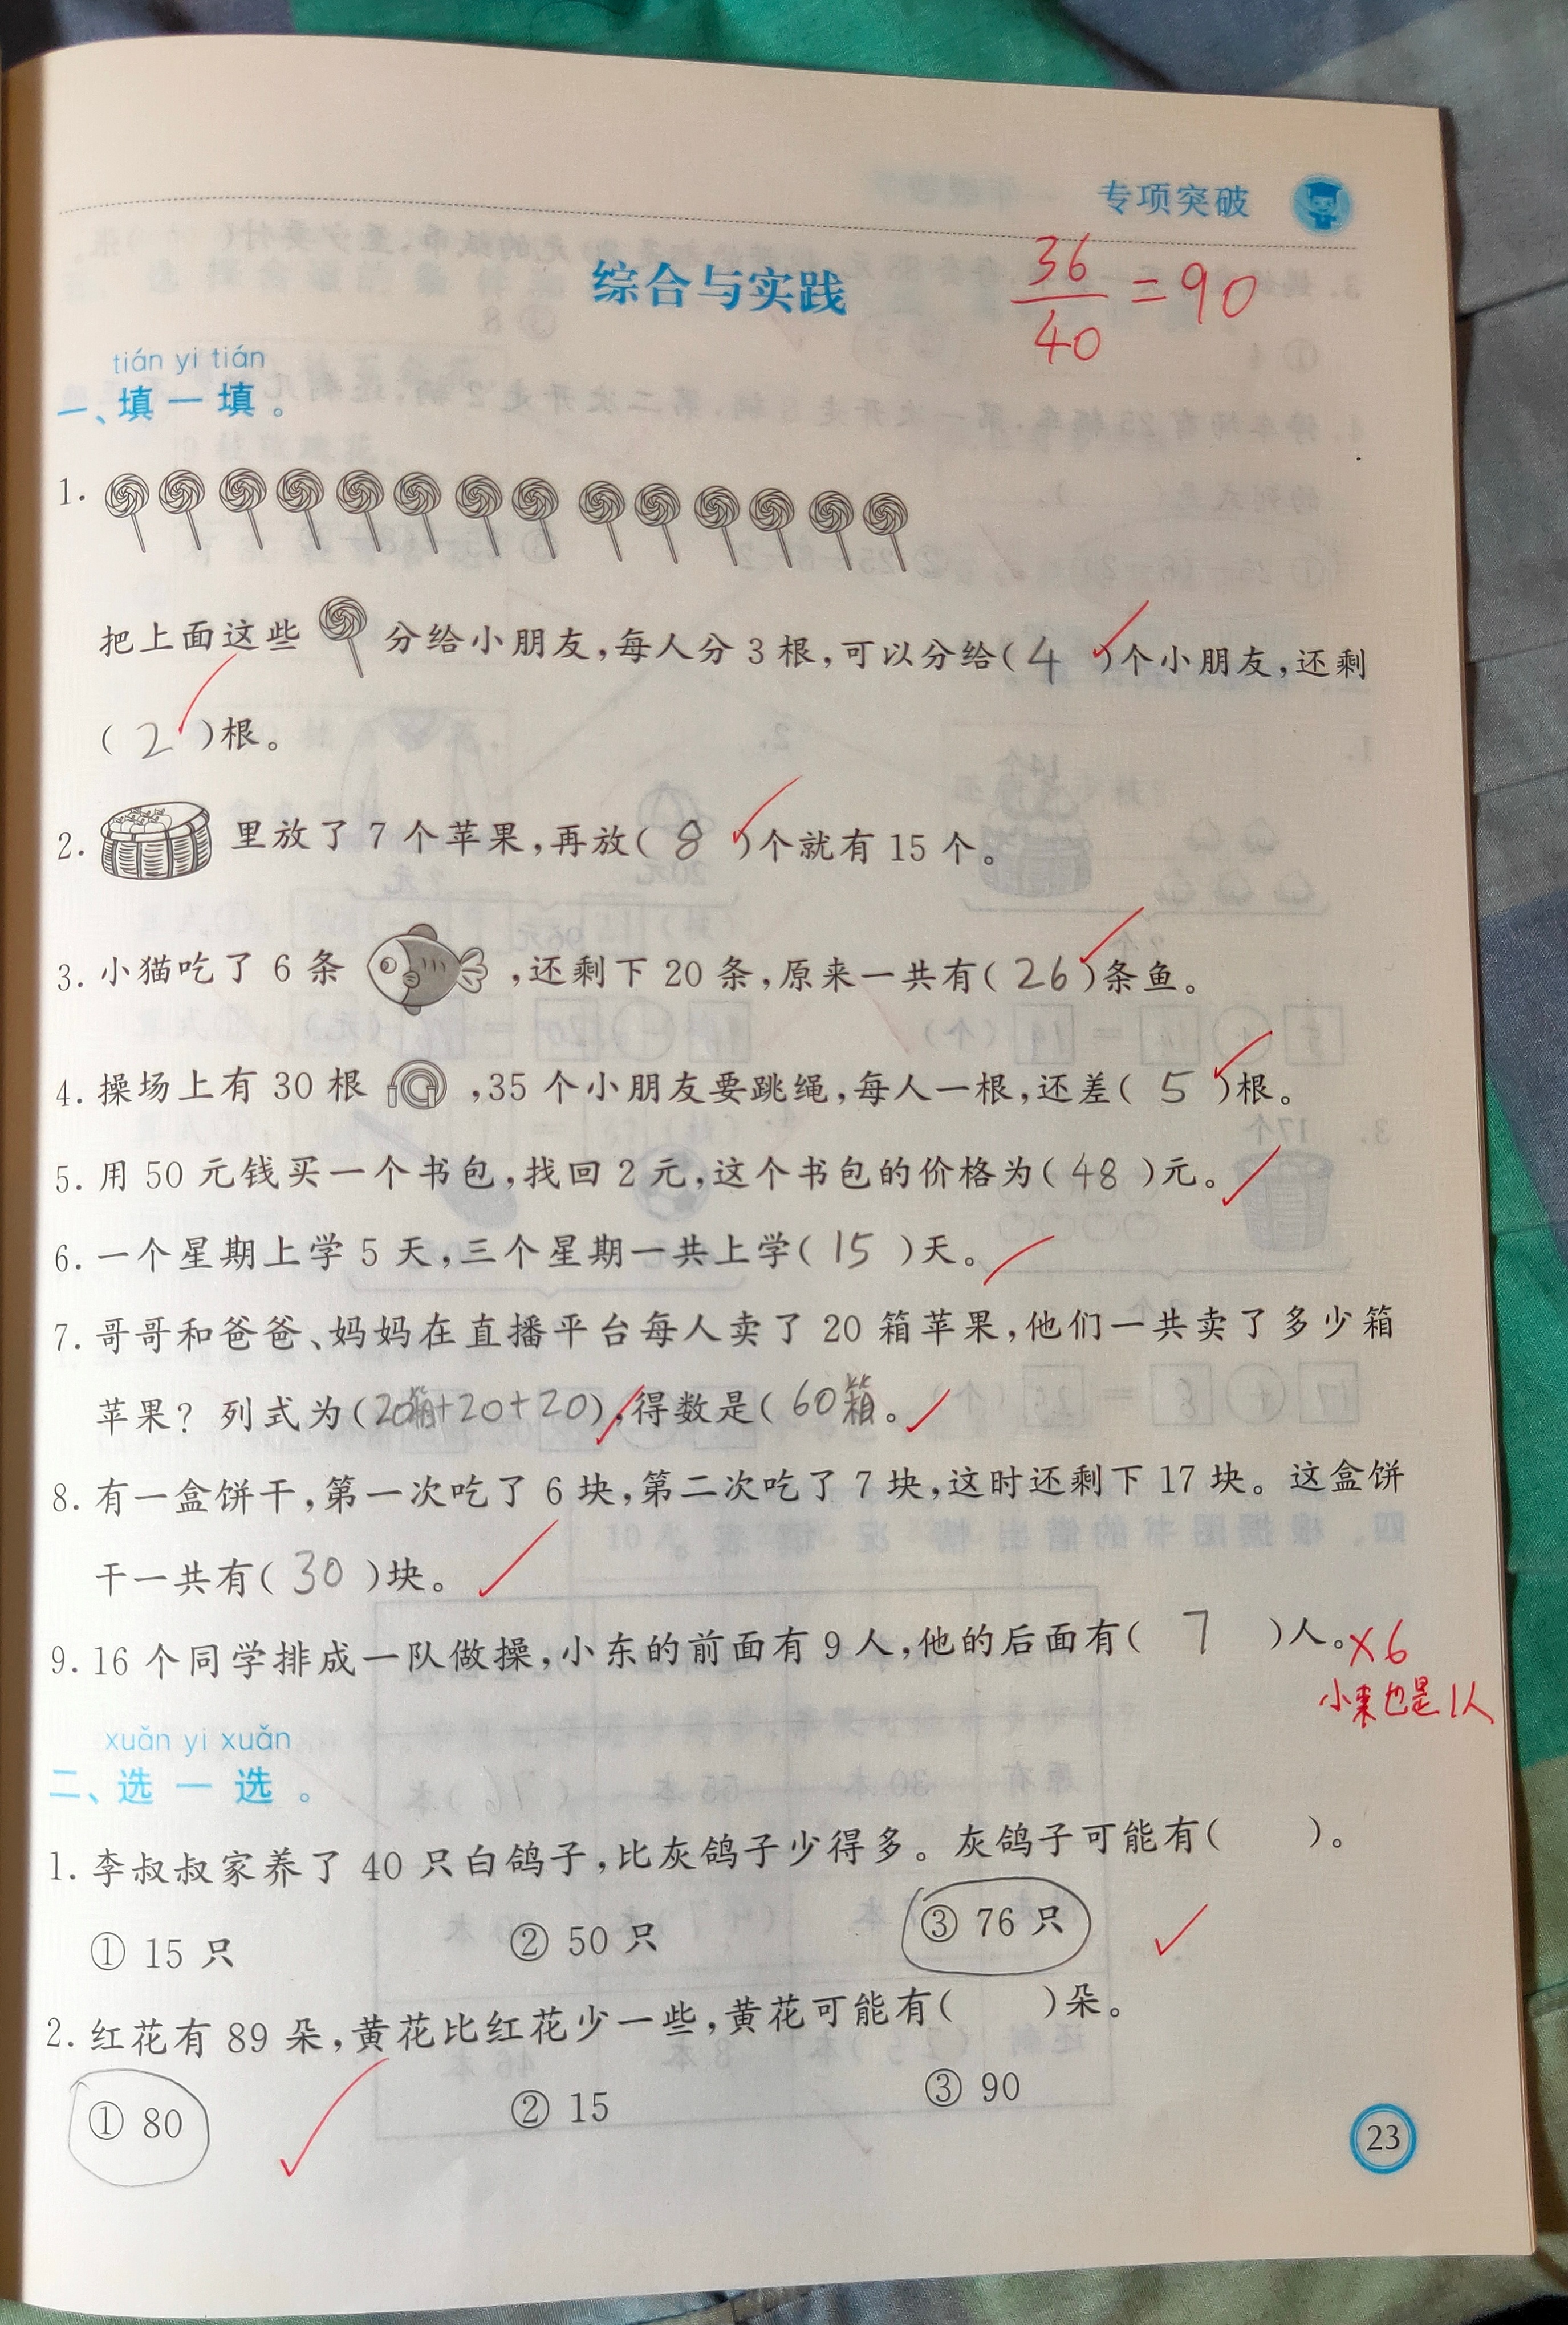 专项突破
综合与实践
36/40=90
tián yi tián
一、填一填。
1.
把上面这些 分给小朋友,每人分3根,可以分给(4)个小朋友,还剩
(2)根。
2. 里放了7个苹果,再放(8)个就有15个。
3. 小猫吃了6条 ,还剩下20条,原来一共有(26)条鱼。
4. 操场上有30根 ,35个小朋友要跳绳,每人一根,还差(5)根。
5. 用50元钱买一个书包,找回2元,这个书包的价格为(48)元。
6. 一个星期上学5天,三个星期一共上学(15)天。
7. 哥哥和爸爸、妈妈在直播平台每人卖了20箱苹果,他们一共卖了多少箱
苹果? 列式为(20箱+20+20),得数是(60箱。
8. 有一盒饼干,第一次吃了6块,第二次吃了7块,这时还剩下17块。这盒饼
干一共有(30)块。
9. 16个同学排成一队做操,小东的前面有9人,他的后面有(7)人。×6
小东也是1人
xuǎn yi xuǎn
二、选一选。
1. 李叔叔家养了40只白鸽子,比灰鸽子少得多。灰鸽子可能有( )。
① 15只 ② 50只 ③ 76只
2. 红花有89朵,黄花比红花少一些,黄花可能有( )朵。
① 80 ② 15 ③ 90
23